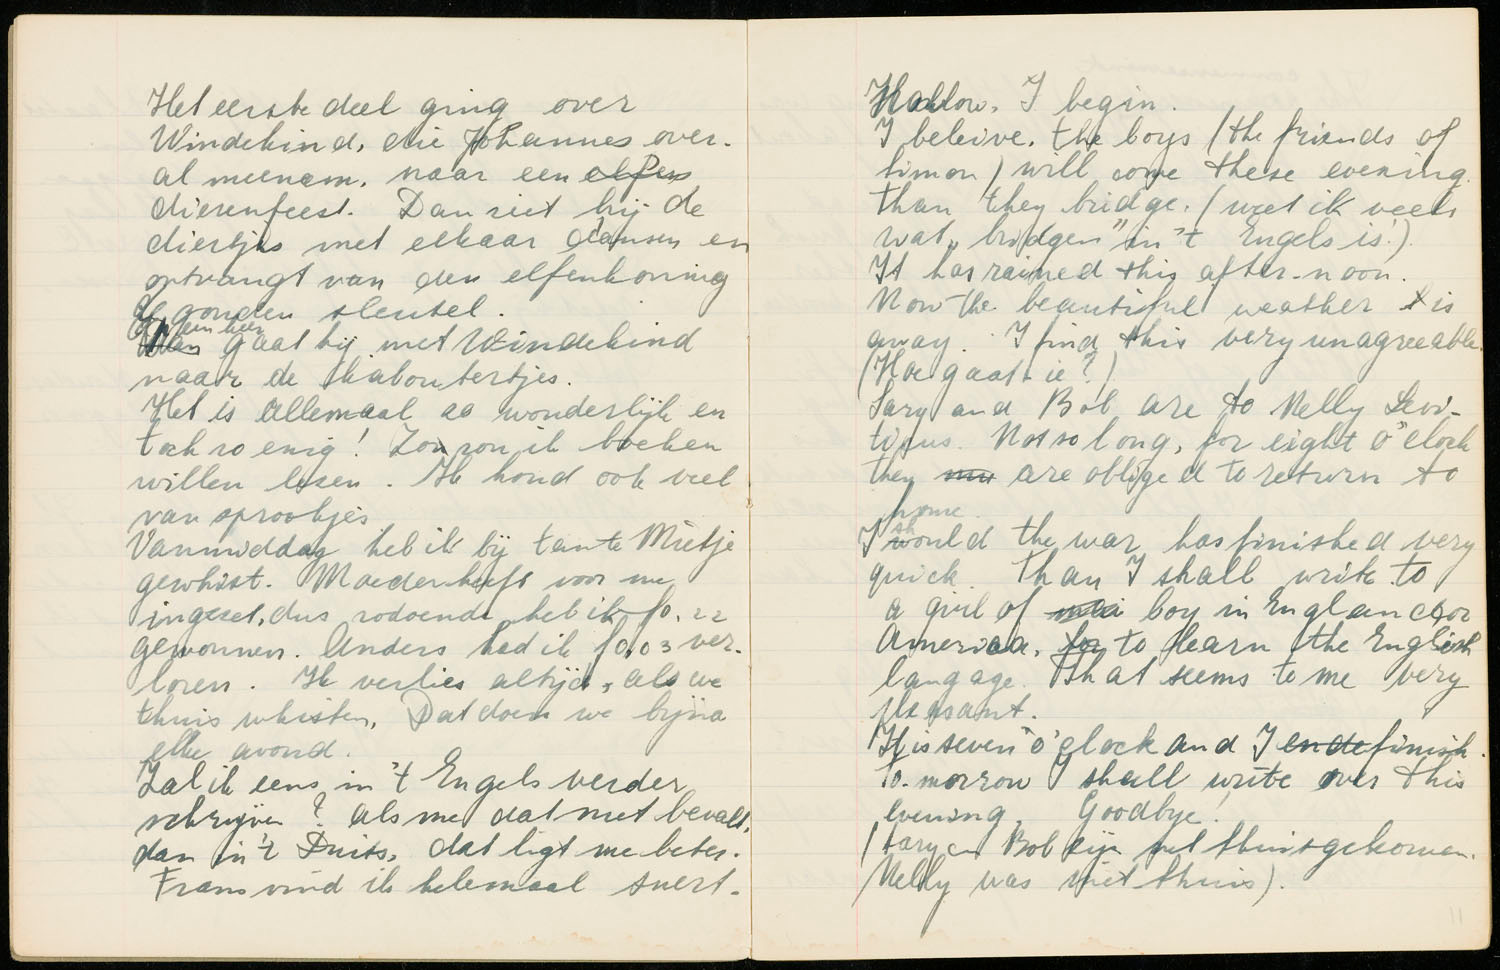 Het eerste deel ging over
Windekind, die Johannes over-
al meenam, naar een elfen
dierenfeest. Dan ziet hij de
diertjes met elkaar dansen en
ontvangt van den elfenkoning
de gouden sleutel.
Dan gaat hij met Windekind
naar de kaboutertjes.
Het is allemaal zo wonderlijk en
toch zo enig! Zo'n zou ik boeken
willen lezen. Ik houd ook veel
van sprookjes
Vanmiddag heb ik bij tante Mietje
gewhist. Moeder heeft voor me
ingezet, dus zodoende heb ik f0.22
gewonnen. Anders had ik f0,03 ver-
loren. Ik verlies altijd, als we
thuis whisten. Dat doen we bijna
elke avond.
Zal ik eens in 't Engels verder
schrijven? Als me dat niet bevalt,
dan in 't Duits, dat ligt me beter.
Frans vind ik helemaal snert.
Hallow. I begin.
I beleive, the boys (the friends of
Simon) will come these evening.
than they bridge. (weet ik veel
wat „bridgen” in 't Engels is!).
It has rained this after-noon.
Now the beautiful weather is
away. I find this very unagreeable.
(Hoe gaat-ie?)
Sary and Bob are to Nelly Levi-
ticus. Not so long, for eight o'clock
they are obliged to return to
home.
I should the war has finished very
quick. Than I shall write to
a girl of boy in England or
America, for to learn the English
langage. That seems to me very
pleasant.
It is seven o'clock and I ende finish.
To-morrow I shall write over this
evening. Goodbye!
(Sary en Bob zijn net thuisgekomen.
Nelly was niet thuis).
11